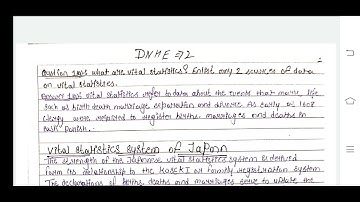 DNHE => 2
Question 1(a): what are vital statistics? Enlist any 2 sources of data
on vital statistics.
Answer 1(a): vital statistics refer to data about the events that make life
such as birth death marriage separation and divorce. As early as 1608
clergy were required to register births, marriages and deaths in
each Parish.
Vital statistics System of Japan
The strength of the Japanese vital statistics system is derived
form its relationship to the KOSEKI or family registration system
The declarations of births, deaths and marriages serve to update the